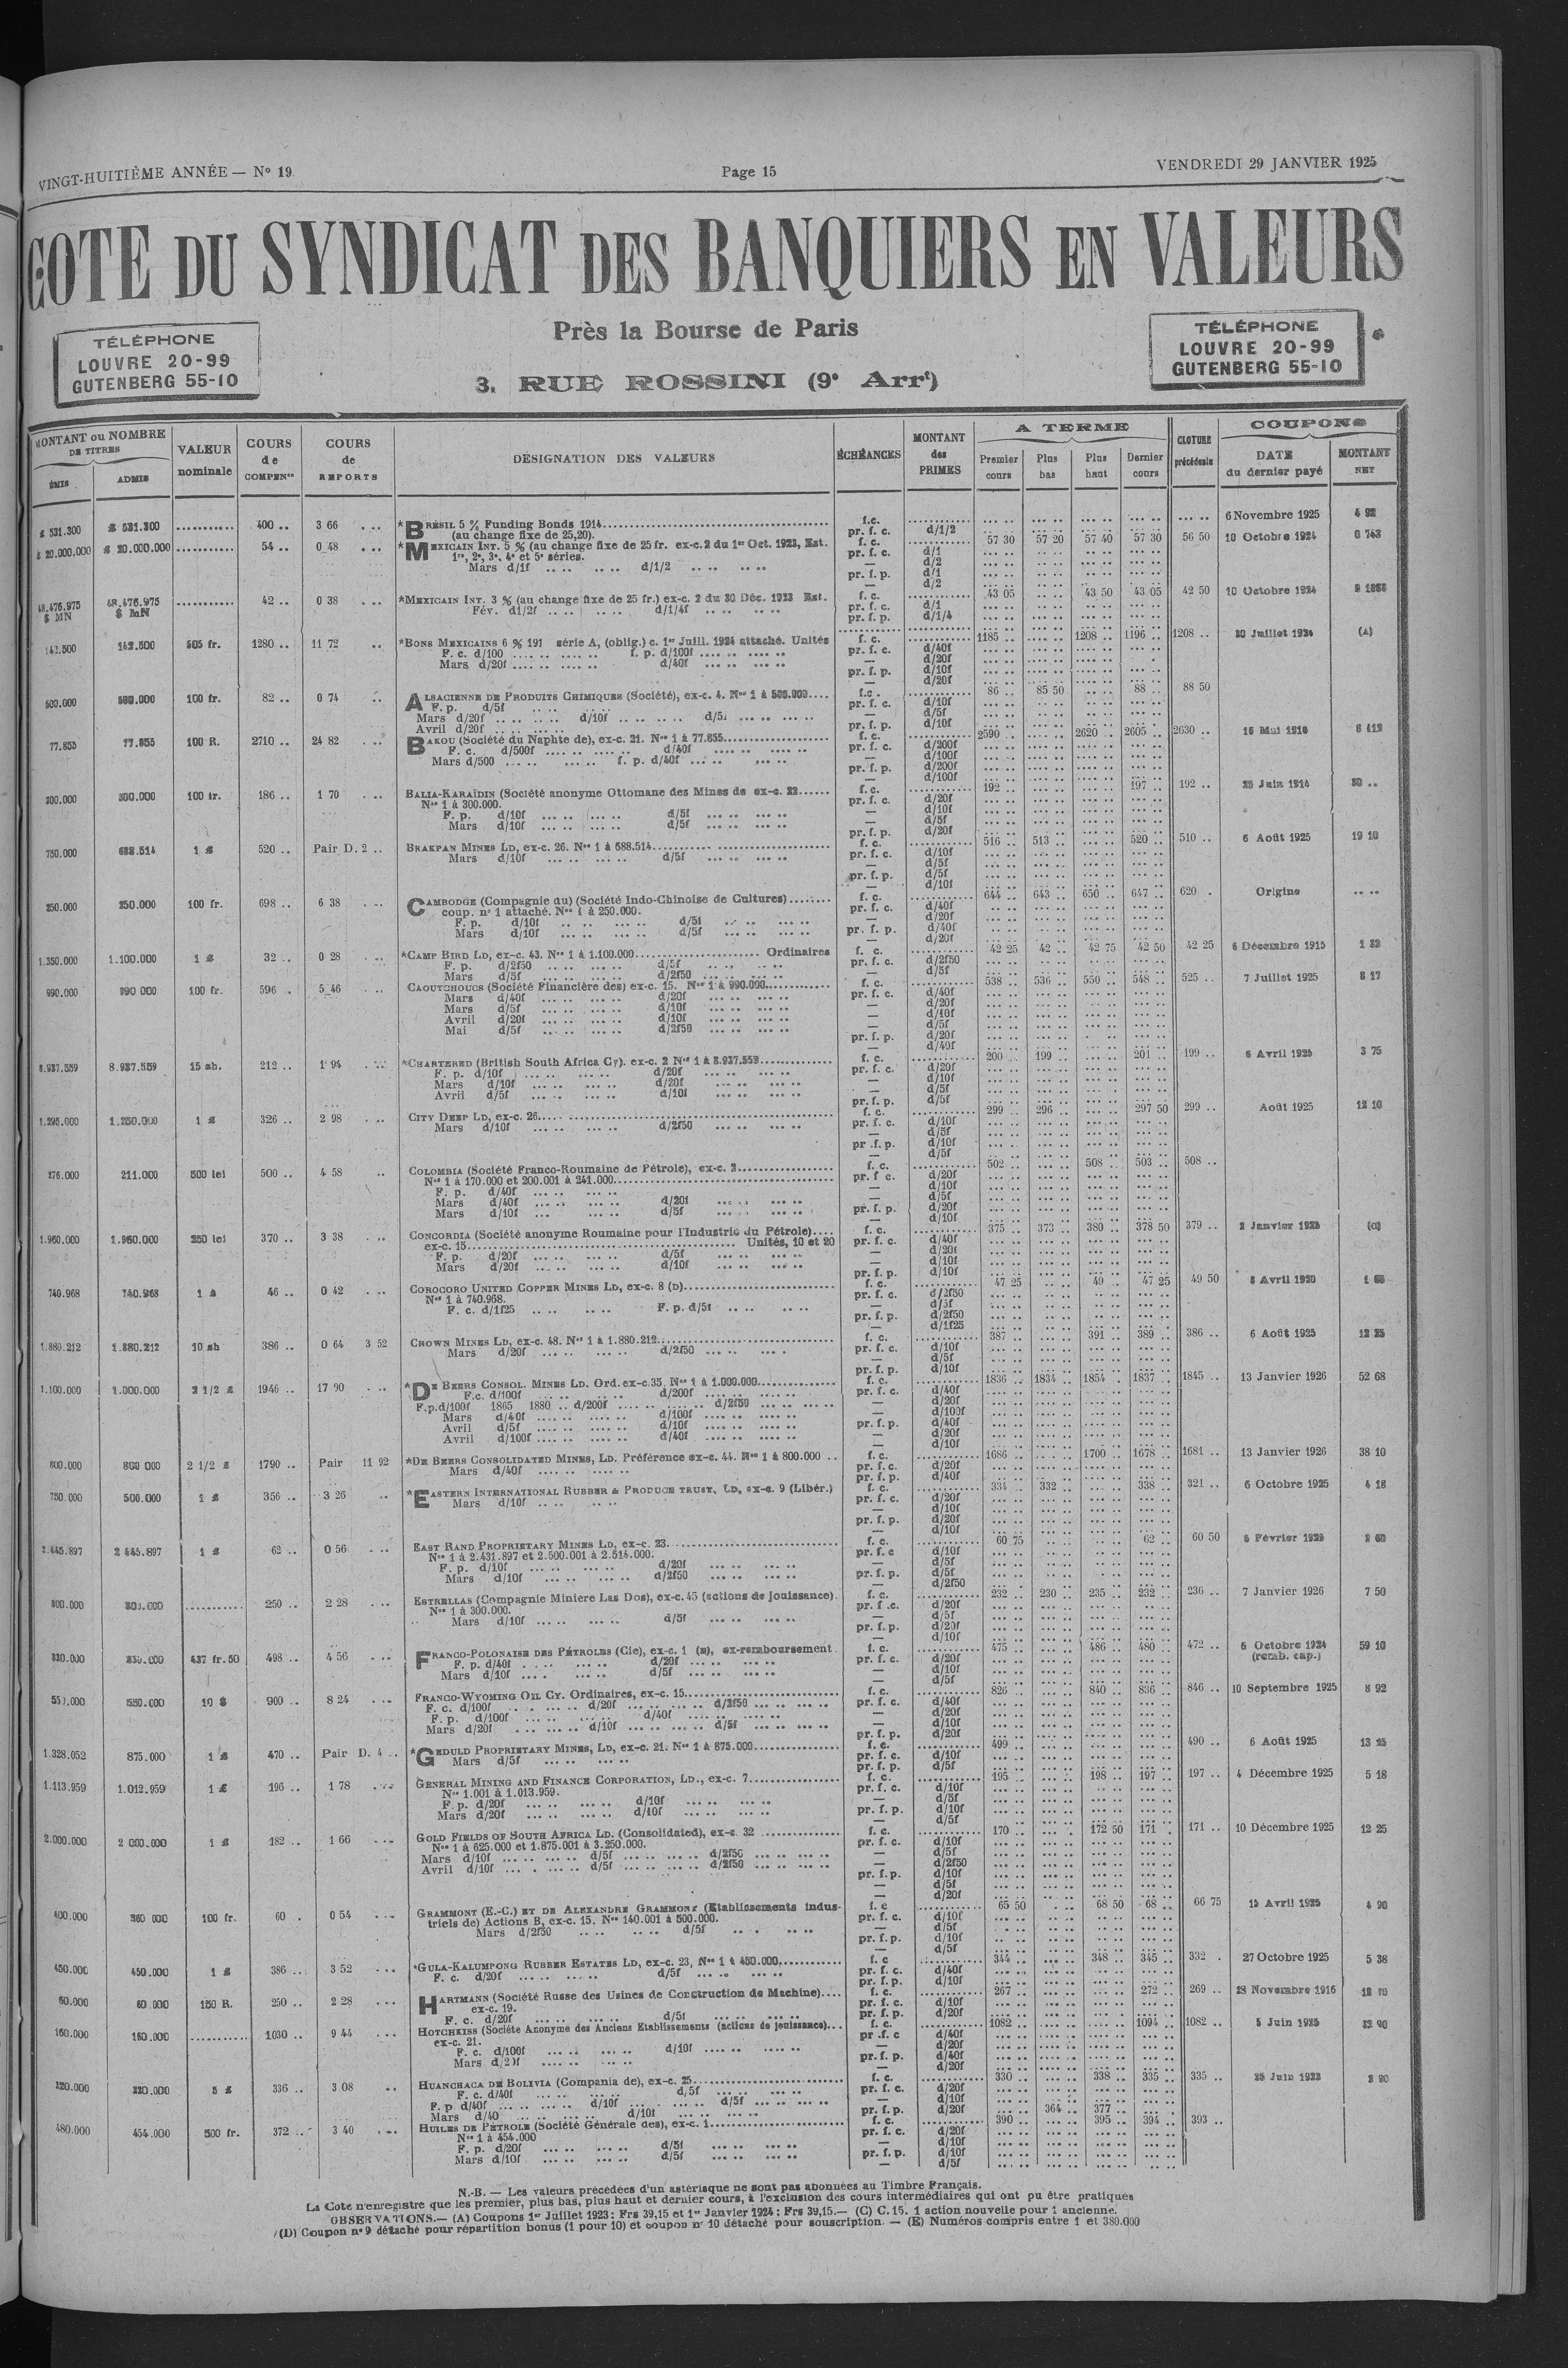 VINGT-HUITIÈME ANNÉE — N° 19
Page 15
VENDREDI 29 JANVIER 1925
COTE DU SYNDICAT DES BANQUIERS EN VALEURS
Près la Bourse de Paris
3, RUE ROSSINI (9e Arrt)
TÉLÉPHONE
LOUVRE 20-99
GUTENBERG 55-10
TÉLÉPHONE
LOUVRE 20-99
GUTENBERG 55-10
MONTANT ou NOMBRE DE TITRES
ÉMIS ADMIS
VALEUR nominale
COURS de COMPENon
COURS de REPORTS
DÉSIGNATION DES VALEURS
ÉCHÉANCES
MONTANT des PRIMES
A TERME
Premier cours Plus bas Plus haut Dernier cours
CLOTURE précédente
COUPONS
DATE du dernier payé
MONTANT NET
£ 531.300 £ 531.300 ........... 400 .. 3 66 . .. *BRÉSIL 5 % Funding Bonds 1914 f.c. 6 Novembre 1925 4 92
(au change fixe de 25,20). pr. f. c. d/1/2
£ 20.000.000 £ 20.000.000 ........... 54 .. 0 48 . .. *MEXICAIN INT. 5 % (au change fixe de 25 fr. ex-c. 2 du 1er Oct. 1923, Est. f. c. 57 30 57 20 57 40 57 30 56 50 10 Octobre 1924 0 743
1re, 2e, 3e, 4e et 5e séries. pr. f. c. d/1
Mars d/1f d/1/2 — d/2
pr. f. p. d/1
— d/2
48.476.975 $ MN 48.476.975 $ MN ........... 42 .. 0 38 . .. *MEXICAIN INT. 3 % (au change fixe de 25 fr.) ex-c. 2 du 30 Déc. 1923 Est. f. c. 43 05 43 50 43 05 42 50 10 Octobre 1924
Fév. d1/2f d/1/4f pr. f. c. d/1
pr. f. p. d/1/4
142.500 142.500 505 fr. 1280 .. 11 72 .. *BONS MEXICAINS 6 % 191 série A, (oblig.) c. 1er Juill. 1924 attaché. Unités f. c. 1185 .. 1208 .. 1196 .. 1208 .. 30 Juillet 1924 (A)
F. c. d/100 f. p. d/100f pr. f. c. d/40f
Mars d/20f d/40f — d/20f
pr. f. p. d/10f
— d/20f
500.000 500.000 100 fr. 82 .. 0 74 .. ALSACIENNE DE PRODUITS CHIMIQUES (Société), ex-c. 4. Nos 1 à 500.000 f.c. 86 .. 85 50 88 .. 88 50
F. p. d/5f pr. f. c. d/10f
Mars d/20f d/10f d/5f — d/5f
Avril d/20f pr. f. p. d/10f
77.855 77.855 100 R. 2710 .. 24 82 . .. BAKOU (Société du Naphte de), ex-c. 21. Nos 1 à 77.855 f. c. 2590 .. 2620 .. 2605 .. 2630 .. 15 Mai 1916
F. c. d/500f d/40f pr. f. c. d/200f
Mars d/500 f. p. d/40f — d/100f
pr. f. p. d/200f
— d/100f
300.000 300.000 100 fr. 186 .. 1 70 . .. BALIA-KARAÏDIN (Société anonyme Ottomane des Mines de ex-c. 22 f. c. 192 .. 197 .. 192 .. 25 Juin 1914
Nos 1 à 300.000. pr. f. c. d/20f
F. p. d/10f d/5f — d/10f
Mars d/10f d/5f — d/5f
pr. f. p. d/20f
750.000 688.514 1 £ 520 .. Pair D. 2 .. BRAKPAN MINES LD, ex-c. 26. Nos 1 à 688.514 f. c. 516 .. 513 .. 520 .. 510 .. 6 Août 1925 19 10
Mars d/10f d/5f pr. f. c. d/10f
— d/5f
pr. f. p. d/5f
— d/10f
250.000 250.000 100 fr. 698 .. 6 38 . .. CAMBODGE (Compagnie du) (Société Indo-Chinoise de Cultures) f. c. 644 .. 643 .. 650 .. 647 .. 620 . Origine .. ..
coup. n° 1 attaché. Nos 1 à 250.000. pr. f. c. d/40f
F. p. d/10f d/5f — d/20f
Mars d/10f d/5f pr. f. p. d/40f
— d/20f
1.350.000 1.100.000 1 £ 32 .. 0 28 . .. *CAMP BIRD LD, ex-c. 43. Nos 1 à 1.100.000 Ordinaires f. c. 42 25 42 .. 42 75 42 50 42 25 6 Décembre 1915
F. p. d/2f50 d/5f pr. f. c. d/2f50
Mars d/5f d/2f50 — d/5f
990.000 990 000 100 fr. 596 . 5 46 . .. CAOUTCHOUCS (Société Financière des) ex-c. 15. Nos 1 à 990.000 f. c. 538 .. 536 .. 550 .. 548 .. 525 .. 7 Juillet 1925 8 17
Mars d/40f d/20f pr. f. c. d/40f
Mars d/5f d/10f — d/20f
Avril d/20f d/10f — d/10f
Mai d/5f d/2f50 — d/5f
pr. f. p. d/20f
— d/40f
8.937.559 8.937.559 15 sh. 212 .. 1 94 . .. *CHARTERED (British South Africa Cy). ex-c. 2 Nos 1 à 8.937.559 f. c. 200 .. 199 .. 201 .. 199 .. 6 Avril 1925 3 75
F. p. d/10f d/20f pr. f. c. d/20f
Mars d/10f d/20f — d/10f
Avril d/5f d/10f — d/5f
pr. f. p. d/5f
1.295.000 1.250.000 1 £ 326 .. 2 98 . .. CITY DEEP LD, ex-c. 26 f. c. 299 .. 296 .. 297 50 299 .. Août 1925 12 10
Mars d/10f d/2f50 pr. f. c. d/10f
— d/5f
pr .f. p. d/10f
— d/5f
276.000 211.000 500 lei 500 .. 4 58 .. COLOMBIA (Société Franco-Roumaine de Pétrole), ex-c. 3 f. c. 502 .. 508 .. 503 .. 508 ..
Nos 1 à 170.000 et 200.001 à 241.000 pr. f c. d/20f
F. p. d/40f — d/10f
Mars d/40f d/20f — d/5f
Mars d/10f d/5f pr. f. p. d/20f
— d/10f
1.960.000 1.960.000 250 lei 370 .. 3 38 . .. CONCORDIA (Société anonyme Roumaine pour l'Industrie du Pétrole) f. c. 375 .. 373 .. 380 .. 378 50 379 .. 2 Janvier 1925
ex-c. 15 Unités, 10 et 20 pr. f. c. d/40f
F. p. d/20f d/5f — d/20f
Mars d/20f d/10f — d/10f
pr. f. p. d/10f
740.968 740.968 1 £ 46 .. 0 42 . .. COROCORO UNITED COPPER MINES LD, ex-c. 8 (D) f. c. 47 25 49 .. 47 25 49 50 8 Avril 1920
Nos 1 à 740.968. pr. f. c. d/2f50
F. c. d/1f25 F. p. d/5f — d/5f
pr. f. p. d/2f50
— d/1f25
1.880.212 1.880.212 10 sh 386 .. 0 64 3 52 CROWN MINES LD, ex-c. 48. Nos 1 à 1.880.212 f. c. 387 .. 391 .. 389 .. 386 .. 6 Août 1925 12 25
Mars d/20f d/2f50 pr. f. c. d/10f
— d/5f
pr. f. p. d/10f
1.100.000 1.000.000 2 1/2 £ 1946 .. 17 90 . .. *DE BEERS CONSOL. MINES LD. Ord. ex-c. 35, Nos 1 à 1.000.000 f. c. 1836 .. 1834 .. 1854 .. 1837 .. 1845 .. 13 Janvier 1926 52 68
F.c. d/100f d/200f pr. f. c. d/40f
F.p. d/100f 1865 1880 .. d/200f d/2f50 — d/20f
Mars d/40f d/100f — d/100f
Avril d/5f d/10f pr. f. p. d/40f
Avril d/100f d/40f — d/20f
— d/10f
800.000 800 000 2 1/2 £ 1790 .. Pair 11 92 *DE BEERS CONSOLIDATED MINES, LD. Préférence ex-c. 44. Nos 1 à 800.000 .. f. c. 1686 .. 1700 .. 1678 .. 1681 .. 13 Janvier 1926 38 10
Mars d/40f pr. f. c. d/20f
pr. f. p. d/40f
750.000 500.000 1 £ 356 .. 3 26 .. *EASTERN INTERNATIONAL RUBBER & PRODUCE TRUST, LD, ex-c. 9 (Libér.) f. c. 334 .. 332 .. 338 .. 321 .. 6 Octobre 1925 4 18
Mars d/10f pr. f. c. d/20f
— d/10f
pr. f. p. d/20f
— d/10f
2.445.897 2 445.897 1 £ 62 .. 0 56 . .. EAST RAND PROPRIETARY MINES LD, ex-c. 23 f. c. 60 75 62 .. 60 50 6 Février 1925
Nos 1 à 2.431.897 et 2.500.001 à 2.514.000. pr. f. c d/10f
F. p. d/10f d/20f — d/5f
Mars d/10f d/2f50 pr. f. p. d/5f
— d/2f50
300.000 300.000 .......... 250 .. 2 28 . .. ESTRELLAS (Compagnie Miniere Las Dos), ex-c. 45 (actions de jouissance). f. c. 232 .. 230 .. 235 .. 232 .. 236 .. 7 Janvier 1926 7 50
Nos 1 à 300.000. pr. f .c. d/20f
Mars d/10f d/5f — d/5f
pr. f. p. d/20f
— d/10f
437 fr. 50 498 .. 4 56 . .. FRANCO-POLONAISE DES PÉTROLES (Cie), ex-c. 1 (E), ex-remboursement f. c. 475 .. 486 .. 480 .. 472 .. 6 Octobre 1924 59 10
F. p. d/40f d/20f pr. f. c. d/20f (remb. cap.)
Mars d/10f d/5f — d/10f
— d/5f
550.000 550.000 10 $ 900 .. 8 24 . .. FRANCO-WYOMING OIL CY. Ordinaires, ex-c. 15 f. c. 826 .. 840 .. 836 .. 846 .. 10 Septembre 1925 8 92
F. c. d/100f d/20f d/2f50 pr. f. c. d/40f
F. p. d/100f d/40f — d/20f
Mars d/20f d/10f d/5f — d/10f
pr. f. p. d/20f
1.328.052 875.000 1 £ 470 .. Pair D. 4 .. *GEDULD PROPRIETARY MINES, LD, ex-c. 21. Nos 1 à 875.000 f. c. 499 .. 490 .. 6 Août 1925 13 25
Mars d/5f pr. f. c. d/10f
pr. f. p. d/5f
1.113.959 1.012.959 1 £ 196 .. 1 78 . .. GENERAL MINING AND FINANCE CORPORATION, LD., ex-c. 7 f. c. 195 .. 198 .. 197 .. 197 .. 4 Décembre 1925 5 18
Nos 1.001 à 1.013.959. pr. f. c. d/10f
F. p. d/20f d/10f — d/5f
Mars d/20f d/10f pr. f. p. d/10f
— d/5f
2.000.000 2 000.000 1 £ 182 .. 1 66 . .. GOLD FIELDS OF SOUTH AFRICA LD. (Consolidated), ex-c. 32 f. c. 170 .. 172 50 171 . 171 .. 10 Décembre 1925 12 25
Nos 1 à 625.000 et 1.875.001 à 3.250.000. pr. f. c. d/10f
Mars d/10f d/5f d/2f50 — d/5f
Avril d/10f d/5f d/2f50 — d/2f50
pr. f. p. d/10f
— d/5f
— d/20f
400.000 360 000 100 fr. 60 . 0 54 . .. GRAMMONT (E.-C.) ET DE ALEXANDRE GRAMMONT (Etablissements indus- f. c 65 50 68 50 68 .. 66 75 15 Avril 1925 4 90
triels de) Actions B, ex-c. 15. Nos 140.001 à 500.000. pr. f. c. d/10f
Mars d/2f50 d/5f — d/5f
pr. f. p. d/10f
— d/5f
450.000 450.000 1 £ 386 .. 3 52 . .. *GULA-KALUMPONG RUBBER ESTATES LD, ex-c. 23, Nos 1 à 450.000 f. c 344 .. 348 .. 345 .. 332 . 27 Octobre 1925 5 38
F. c. d/20f d/5f pr. f. c. d/40f
pr. f. p. d/10f
60.000 60.000 150 R. 250 .. 2 28 . .. HARTMANN (Société Russe des Usines de Construction de Machine) f. c. 267 .. 272 .. 269 .. 28 Novembre 1916
ex-c. 19. pr. f. c. d/10f
F. c. d/20f d/5f pr. f. p. d/20f
160.000 160.000 .......... 1030 .. 9 44 . .. HOTCHKISS (Société Anonyme des Anciens Etablissements (actions de jouissance) f. c. 1082 .. 1094 .. 1082 .. 5 Juin 1925
ex-c. 21. pr .f. c d/40f
F. c. d/100f d/10f — d/20f
Mars d/20f pr. f. p. d/40f
— d/20f
320.000 320.000 5 £ 336 .. 3 08 .. HUANCHACA DE BOLIVIA (Compania de), ex-c. 25 f. c. 330 .. 338 .. 335 .. 335 .. 25 Juin 1923
F. c. d/40f d/5f pr. f. c. d/20f
F. p d/40f d/10f d/5f — d/10f
Mars d/40 d/10f pr. f. p. d/20f 364 .. 377 ..
480.000 454.000 500 fr. 372 .. 3 40 . .. HUILES DE PÉTROLE (Société Générale des), ex-c. 1 f. c. 390 .. 395 .. 394 .. 393 ..
Nos 1 à 454.000 pr. f. c. d/20f
F. p. d/20f d/5f — d/10f
Mars d/10f d/5f pr. f. p. d/10f
— d/5f
N.-B. — Les valeurs précédées d'un astérisque ne sont pas abonnées au Timbre Français.
La Cote n'enregistre que les premier, plus bas, plus haut et dernier cours, à l'exclusion des cours intermédiaires qui ont pu être pratiqués
OBSERVATIONS.— (A) Coupons 1er Juillet 1923 : Frs 39,15 et 1er Janvier 1924 : Frs 39,15.— (C) C. 15. 1 action nouvelle pour 1 ancienne.
(D) Coupon n° 9 détaché pour répartition bonus (1 pour 10) et coupon n° 10 détaché pour souscription. — (E) Numéros compris entre 1 et 380.000